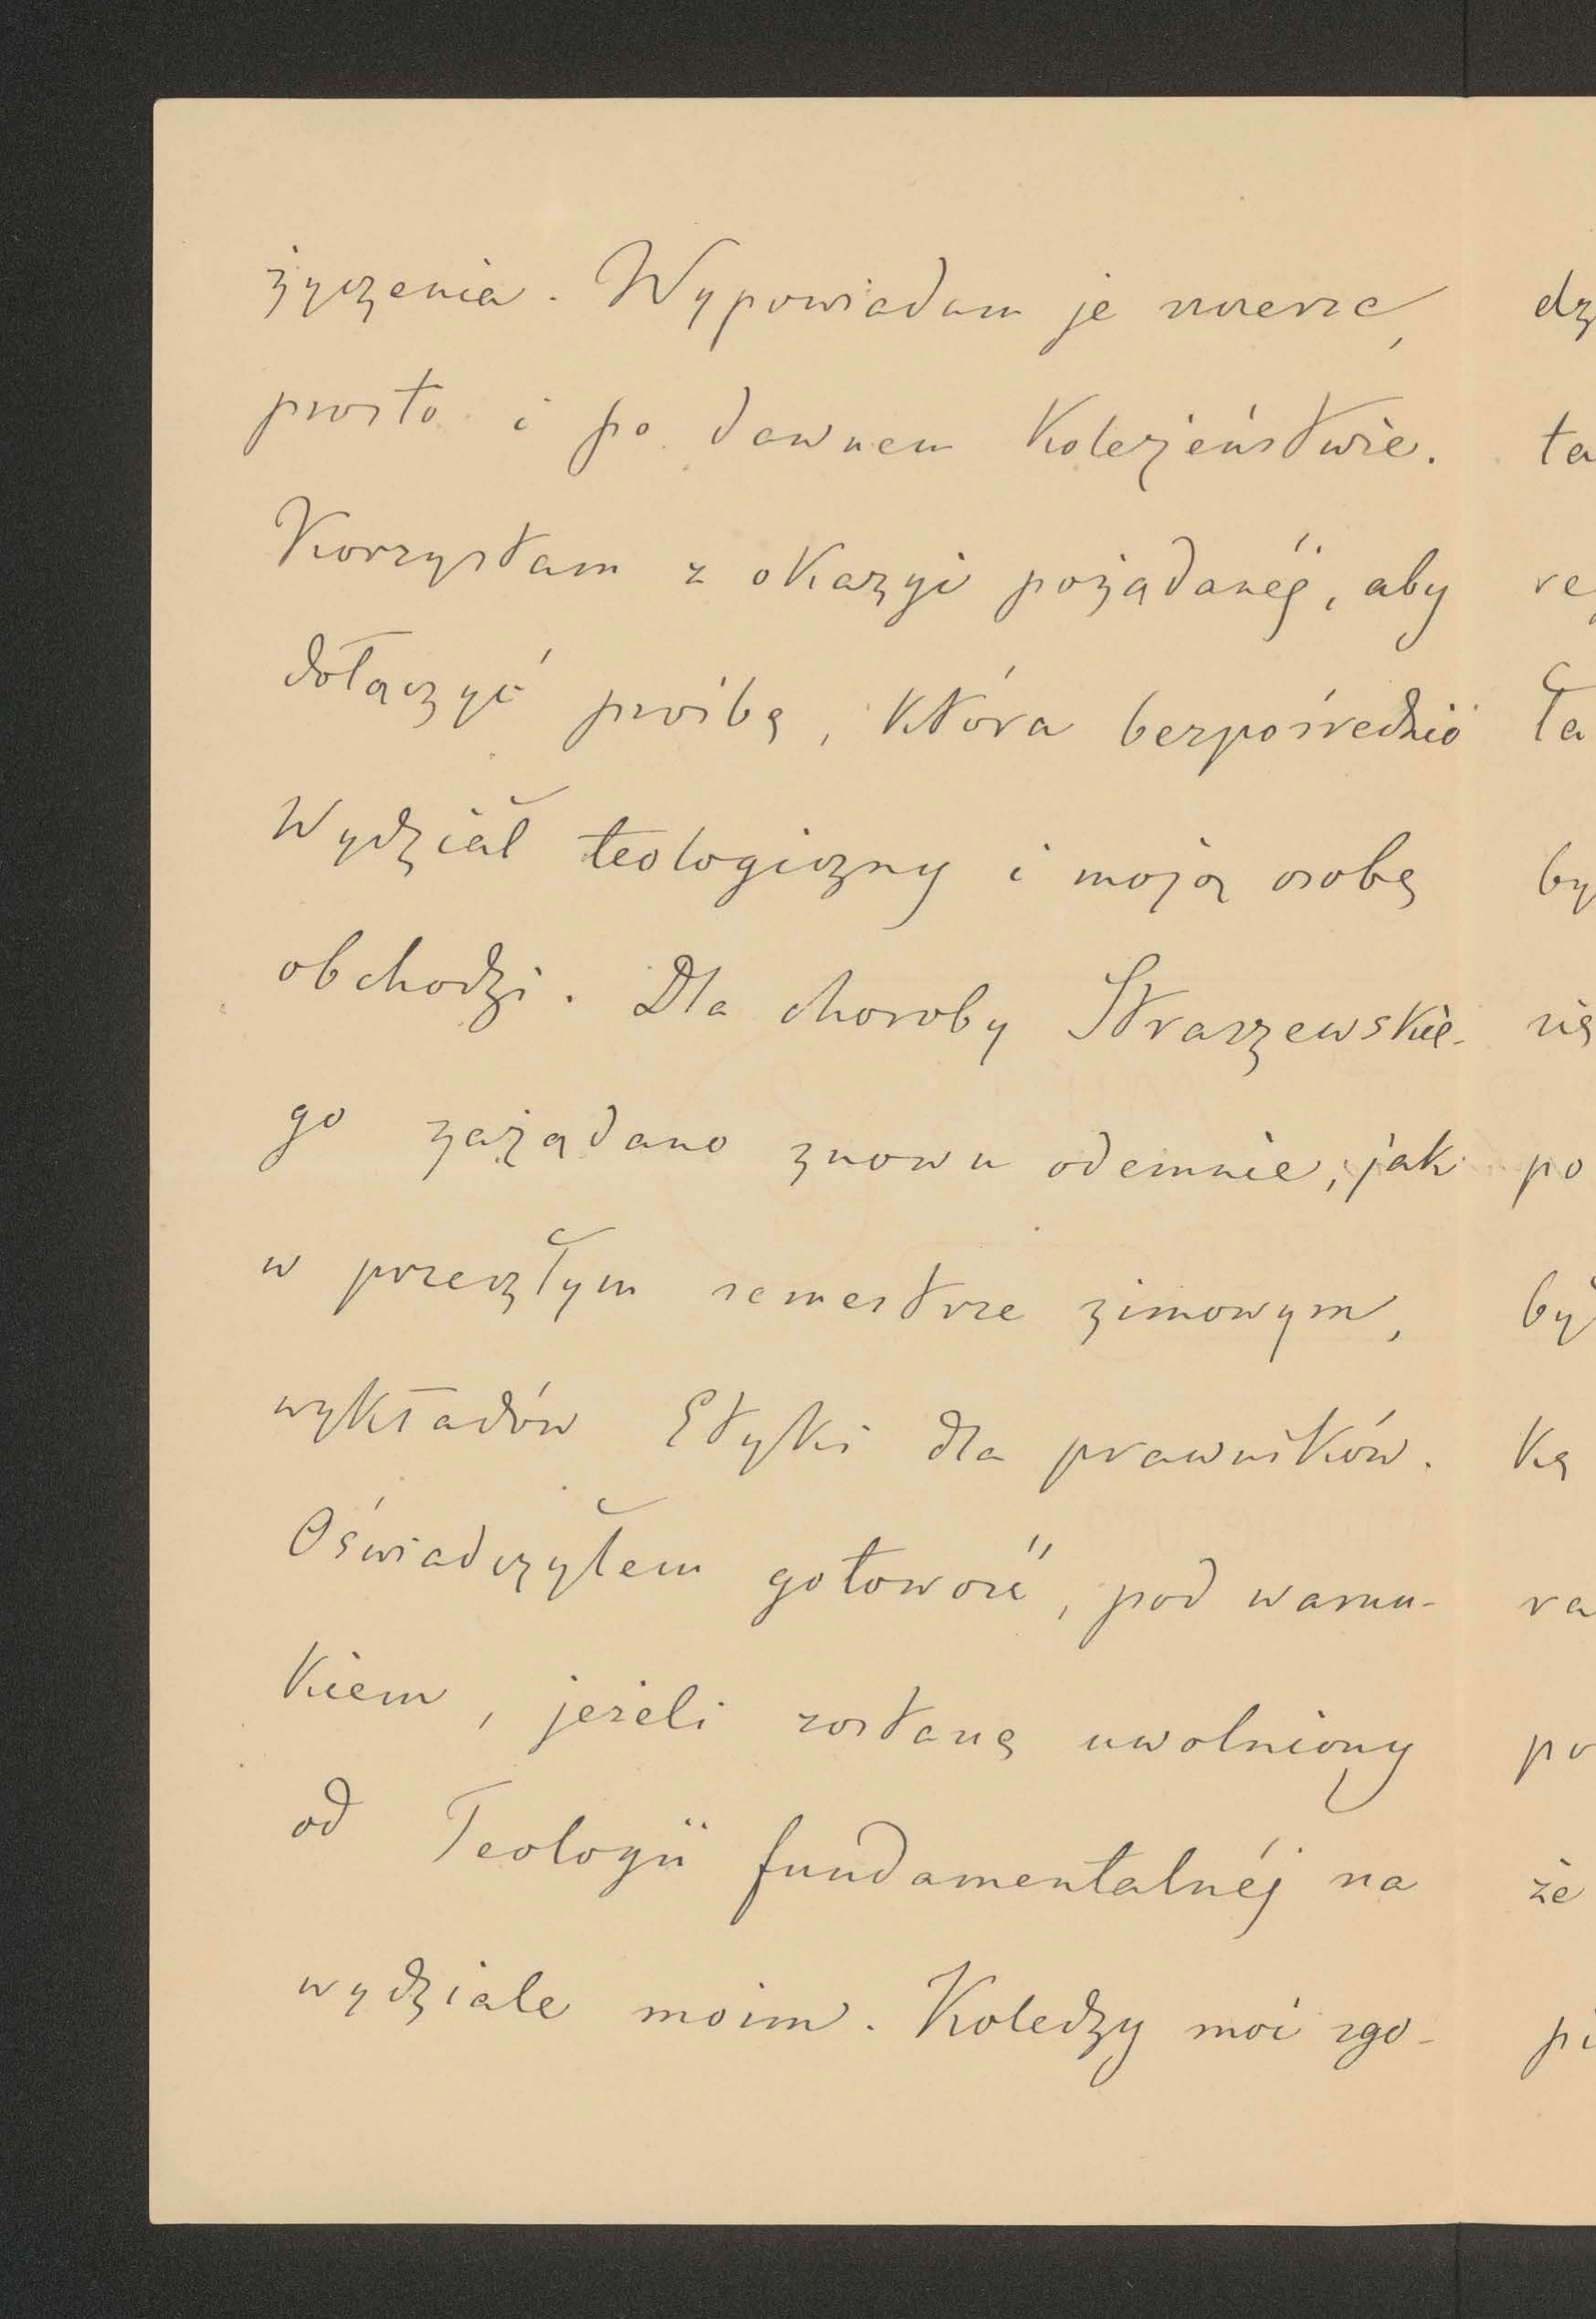 życzenia. Wypowiadam je szczerze,
prosto i po dawnem Koleżeństwie.
Korzystam z okazyi pożądanéj, aby
dołączyć prośbę, która bezpośrednio
Wydział teologiczny i moją osobę
obchodzi. Dla choroby Straszewskie-
go zażądano znowu odemnie, jak
w przeszłym semestrze zimowym,
wykładów Etyki dla prawników.
Oświadczyłem gotowość, pod warun-
kiem, jeżeli zostanę uwolniony
od Teologii fundamentalnéj na
wydziale moim. Koledzy moi zgo-
dz
ta
re
ła
by
się
po
by
kę
ra
po
że
pi